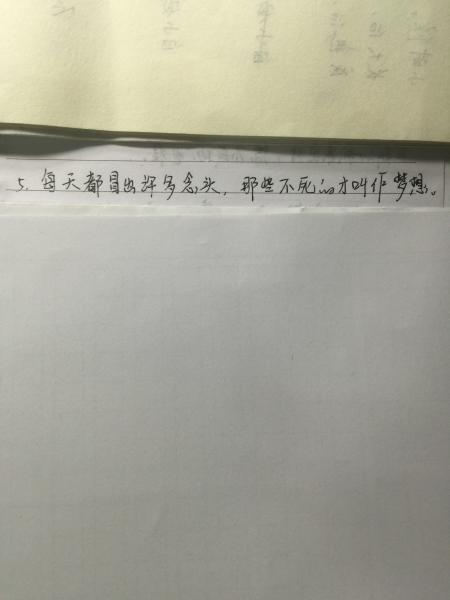 5. 每天都冒出许多念头，那些不死的才叫作梦想。